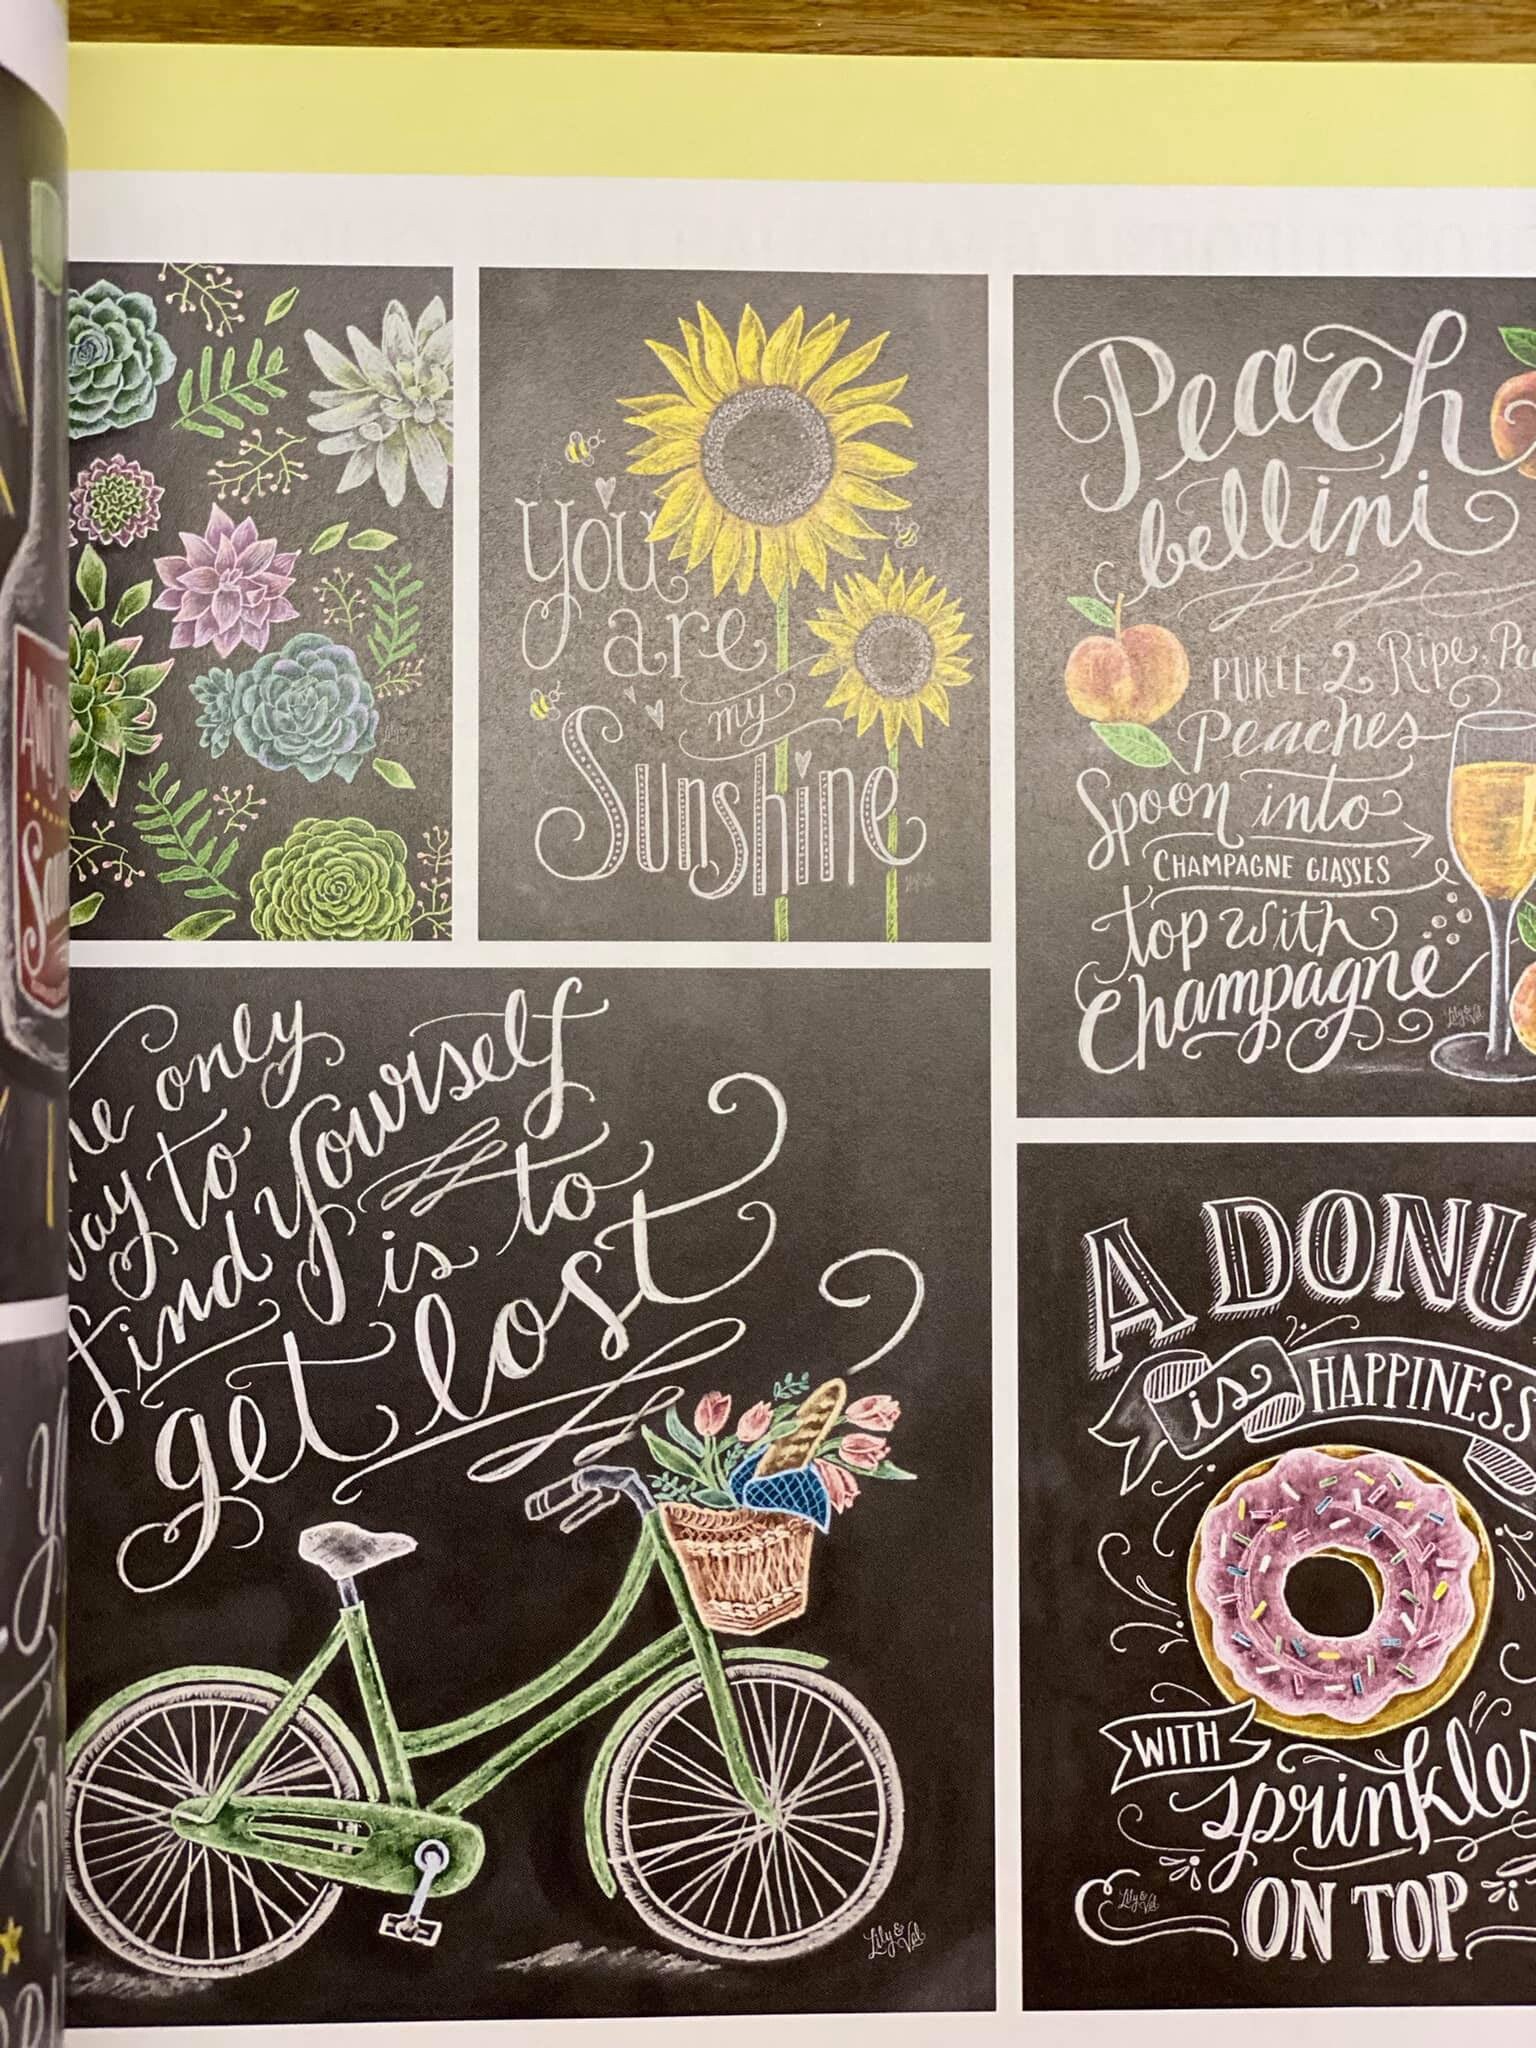 You
are
my
Sunshine
Peach
bellini
PURÉE 2 Ripe,
Peaches
Spoon into
CHAMPAGNE GLASSES
top with
Champagne
Lily & Val
only
to
find yourself
is to
get lost
Lily & Val
A
is HAPPINESS
WITH
sprinkles
ON TOP
Lily & Val